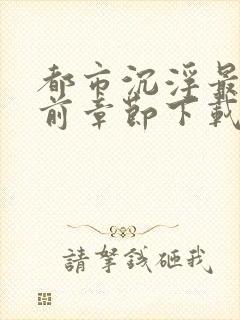 都市沉浮最
前章節下載
請拏錢砸我